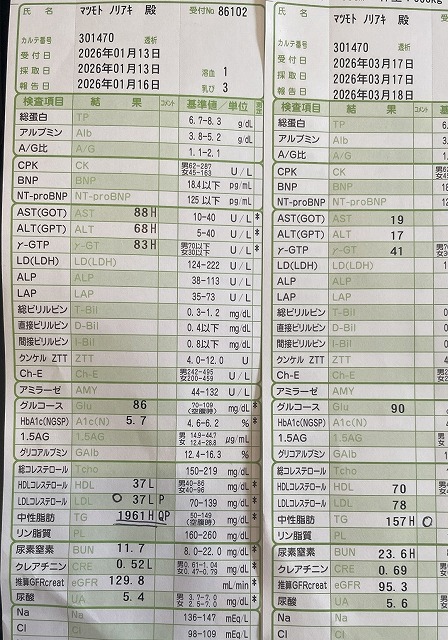 氏 名 マツモト ノリアキ 殿 受付No 86102
カルテ番号 301470 透析
受付日 2026年01月13日
採取日 2026年01月13日 溶血 1
報告日 2026年01月16日 乳び 3
検査項目 結 果 コメント 基準値／単位
総蛋白 TP 6.7-8.3 g/dL
アルブミン Alb 3.8-5.2 g/dL
A/G比 A/G 1.1-2.1
CPK CK 男62-287 女45-163 U/L
BNP BNP 18.4以下 pg/mL
NT-proBNP NT-proBNP 125以下 pg/mL
AST(GOT) AST 88H 10-40 U/L *
ALT(GPT) ALT 68H 5-40 U/L *
γ-GTP γ-GT 83H 男70以下 女30以下 U/L *
LD(LDH) LD(LDH) 124-222 U/L
ALP ALP 38-113 U/L
LAP LAP 35-73 U/L
総ビリルビン T-Bil 0.3-1.2 mg/dL
直接ビリルビン D-Bil 0.4以下 mg/dL
間接ビリルビン I-Bil 0.8以下 mg/dL
クンケル ZTT ZTT 4.0-12.0 U
Ch-E Ch-E 男242-495 女200-459 U/L
アミラーゼ AMY 44-132 U/L
グルコース Glu 86 70-109 (空腹時) mg/dL *
HbA1c(NGSP) A1c(N) 5.7 4.6-6.2 % *
1.5AG 1.5AG 男14.9-44.7 女12.4-28.8 μg/mL
グリコアルブミン GAlb 12.4-16.3 %
総コレステロール Tcho 150-219 mg/dL
HDLコレステロール HDL 37L 男40-86 女40-96 mg/dL *
LDLコレステロール LDL 37L P 70-139 mg/dL *
中性脂肪 TG 1961H QP 50-149 (空腹時) mg/dL *
リン脂質 PL 160-260 mg/dL
尿素窒素 BUN 11.7 8.0-22.0 mg/dL *
クレアチニン CRE 0.52L 男0.61-1.04 女0.47-0.79 mg/dL *
推算GFRcreat eGFR 129.8 mL/min *
尿酸 UA 5.4 男3.7-7.0 女2.5-7.0 mg/dL *
Na Na 136-147 mEq/L
Cl Cl 98-109 mEq/L
氏 名 マツモト ノリアキ 殿
カルテ番号 301470 透析
受付日 2026年03月17日
採取日 2026年03月17日
報告日 2026年03月18日
検査項目 結 果 コメント
総蛋白 TP
アルブミン Alb
A/G比 A/G
CPK CK
BNP BNP
NT-proBNP NT-proBNP
AST(GOT) AST 19
ALT(GPT) ALT 17
γ-GTP γ-GT 41
LD(LDH) LD(LDH)
ALP ALP
LAP LAP
総ビリルビン T-Bil
直接ビリルビン D-Bil
間接ビリルビン I-Bil
クンケル ZTT ZTT
Ch-E Ch-E
アミラーゼ AMY
グルコース Glu 90
HbA1c(NGSP) A1c(N)
1.5AG 1.5AG
グリコアルブミン GAlb
総コレステロール Tcho
HDLコレステロール HDL 70
LDLコレステロール LDL 78
中性脂肪 TG 157H
リン脂質 PL
尿素窒素 BUN 23.6H
クレアチニン CRE 0.69
推算GFRcreat eGFR 95.3
尿酸 UA 5.6
Na Na
Cl Cl